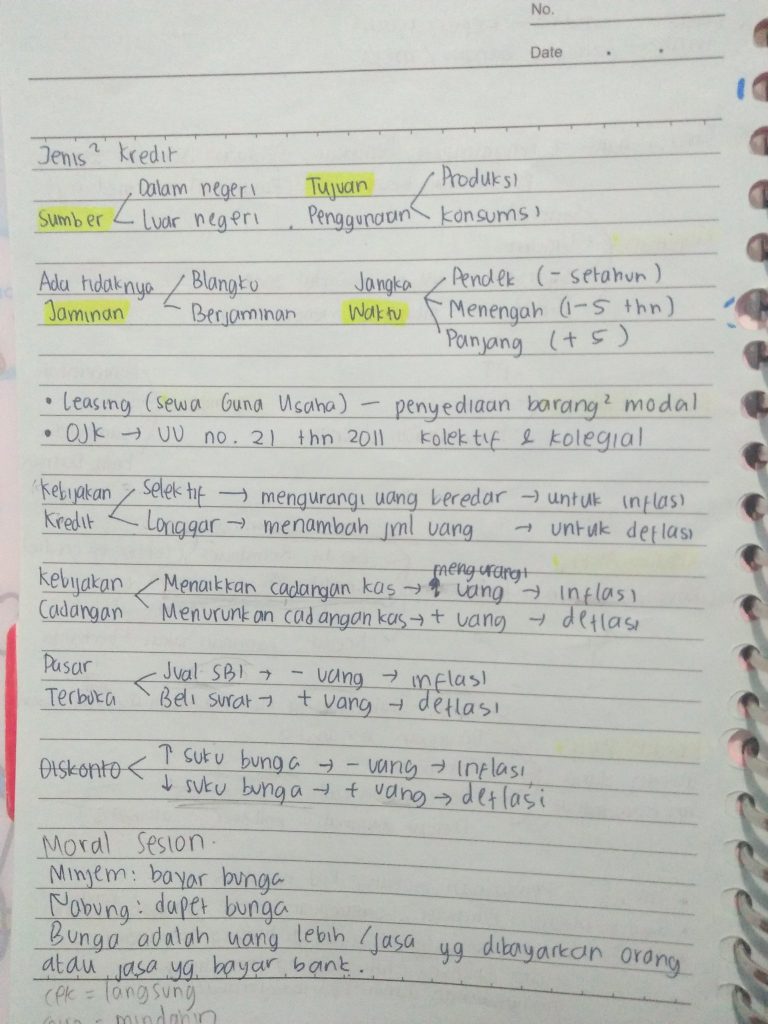 No.
Date
Jenis² kredit
Sumber < Dalam negeri
Luar negeri
Tujuan Penggunaan < Produksi
konsumsi
Ada tidaknya Jaminan < Blangko
Berjaminan
Jangka Waktu < Pendek (- setahun)
Menengah (1-5 thn)
Panjang (+ 5)
• Leasing (sewa Guna Usaha) — penyediaan barang² modal
• OJK → UU no. 21 thn 2011 kolektif & kolegial
Kebijakan Kredit < Selektif → mengurangi uang beredar → untuk inflasi
Longgar → menambah jml uang → untuk deflasi
Kebijakan Cadangan < Menaikkan cadangan kas → mengurangi uang → inflasi
Menurunkan cadangan kas → + uang → deflasi
Pasar Terbuka < Jual SBI → - uang → inflasi
Beli surat → + uang → deflasi
Diskonto < ↑ suku bunga → - uang → inflasi
↓ suku bunga → + uang → deflasi
Moral Sesion.
Minjem: bayar bunga
Nabung: dapet bunga
Bunga adalah uang lebih /jasa yg dibayarkan orang
atau jasa yg bayar bank.
cek = langsung
= mindahin